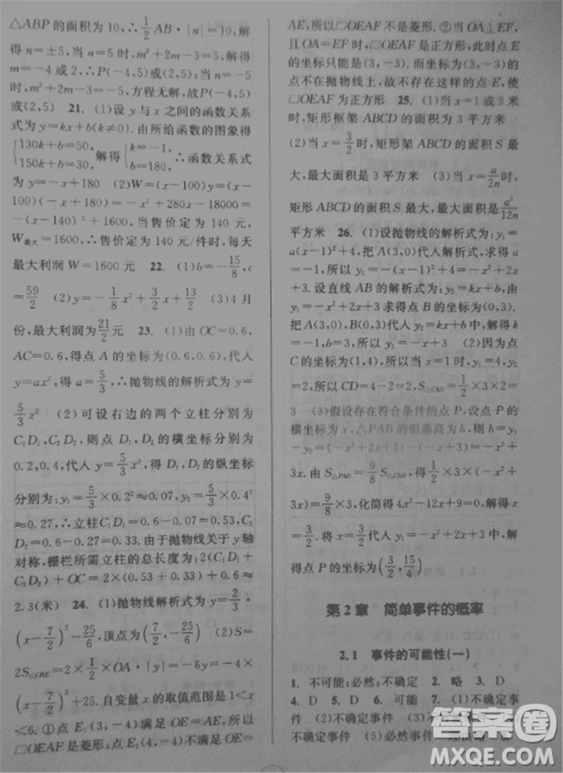 △ABP的面积为10,∴$\frac{1}{2}$AB·|n|=10,解得
n=±5,当n=5时,m²+2m-3=5,解得:m=
-4或2,∴P(-4,5)或(2,5);当n=-5
时,m²+2m-3=-5,方程无解,故P(-4,5)
或(2,5) 21. (1)设y与x之间的函数关系
式为y=kx+b(k≠0),由所给函数的图象得
{130k+b=50, 150k+b=30, 解得{k=-1, b=180, ∴函数关系式
为y=-x+180 (2)W=(x-100)y=(x-
100)(-x+180)=-x²+280x-18000=
-(x-140)²+1600,当售价定为140元,
W最大=1600,∴售价定为140元/件时,每天
最大利润W=1600元 22. (1)b=-$\frac{15}{8}$,c
=$\frac{59}{2}$ (2)y=-$\frac{1}{8}$x²+$\frac{3}{2}$x+$\frac{13}{2}$ (3)4月
份,最大利润为$\frac{21}{2}$元 23. (1)由OC=0.6,
AC=0.6,得点A的坐标为(0.6,0.6),代入
y=ax²,得a=$\frac{5}{3}$,∴抛物线的解析式为y=
$\frac{5}{3}$x² (2)可设右边的两个立柱分别为
C₁D₁,C₂D₂,则点D₁,D₂的横坐标分别为
0.2,0.4,代入y=$\frac{5}{3}$x²,得D₁,D₂的纵坐标
分别为:y₁=$\frac{5}{3}$×0.2²≈0.07,y₂=$\frac{5}{3}$×0.4²
≈0.27,∴立柱C₁D₁=0.6-0.07=0.53,
C₂D₂=0.6-0.27=0.33.由于抛物线关于y轴
对称,栅栏所需立柱的总长度为:2(C₁D₁+
C₂D₂)+OC=2×(0.53+0.33)+0.6≈
2.3(米) 24. (1)抛物线解析式为y=$\frac{2}{3}$·
(x-$\frac{7}{2}$)²-$\frac{25}{6}$,顶点为($\frac{7}{2}$,-$\frac{25}{6}$) (2)S=
2S△OAE=2×$\frac{1}{2}$×OA·|y|=-6y=-4·
(x-$\frac{7}{2}$)²+25.自变量x的取值范围是1<x
<6.①当点E₁(3,-4)满足OE=AE,所以
□OEAF是菱形,点E₂(4,-4)不满足OE=AE,
所以□OEAF不是菱形.②当OA⊥EF,
且OA=EF时,□OEAF是正方形,此时点E
的坐标只能是(3,-3),而坐标为(3,-3)的
点不在抛物线上,故不存在这样的点E,使
□OEAF为正方形 25. (1)当x=1或3米
时,矩形框架ABCD的面积为3平方米
(2)当x=$\frac{3}{2}$时,矩形架ABCD的面积S最
大,最大面积是3平方米 (3)当x=$\frac{a}{2n}$时,
矩形ABCD的面积S最大,最大面积为$\frac{a²}{12n}$
平方米 26. (1)设抛物线的解析式为:y₁=
a(x-1)²+4,把A(3,0)代入解析式求得a=
-1,所以y₁=-(x-1)²+4=-x²+2x+3,
设直线AB的解析式为:y₂=kx+b,由y₁=
-x²+2x+3求得B点的坐标为(0,3),把
A(3,0),B(0,3)代入y₂=kx+b中,解得:
k=-1,b=3,所以y₂=-x+3 (2)因为
C点坐标为(1,4),所以当x=1时,y₁=4,y₂
=2.所以CD=4-2=2,S△CAB=$\frac{1}{2}$×3×2=
3 (3)假设存在符合条件的点P,设P点的
横坐标为x,△PAB的铅垂高为h,则h=y₁
-y₂=(-x²+2x+3)-(-x+3)=-x²+
3x.由S△PAB=$\frac{9}{8}$S△CAB,得$\frac{1}{2}$×3×(-x²+
3x)=$\frac{9}{8}$×3,化简得4x²-12x+9=0,解得x
=$\frac{3}{2}$.将x=$\frac{3}{2}$代入y₁=-x²+2x+3中,解
得点P的坐标为($\frac{3}{2}$,$\frac{15}{4}$)
第2章 简单事件的概率
2.1 事件的可能性(一)
1. 不可能;必然;不确定 2. 略 3. D
4. D 5. D 6. 可能 7. (1)不确定事
件 (2)不确定事件 (3)不确定事件
(4)不确定事件 (5)必然事件
答案圈
MXQE.COM